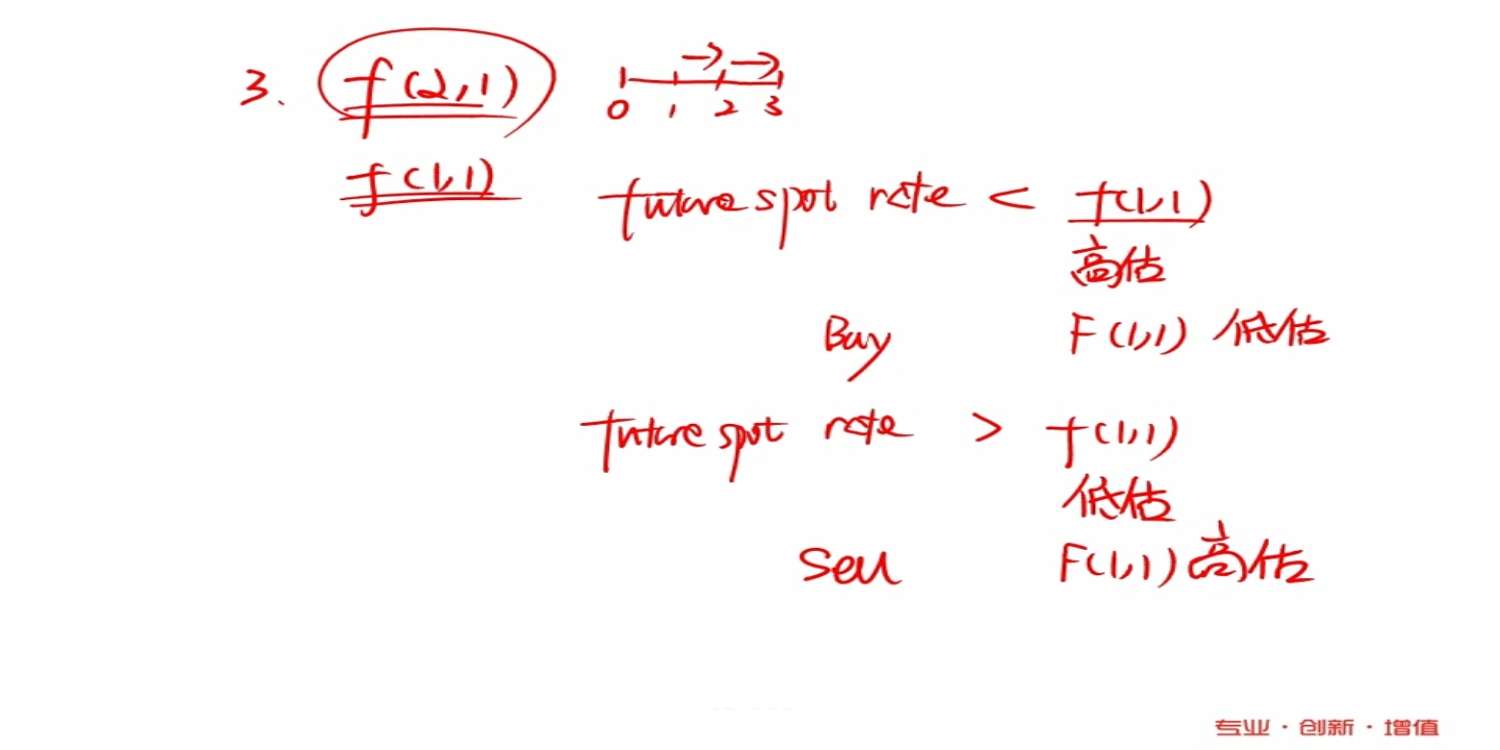 3. f(2,1)
0 1 2 3
f(1,1)
future spot rate < f(1,1)
高估
Buy F(1,1) 低估
future spot rate > f(1,1)
低估
Sell F(1,1) 高估
专业·创新·增值